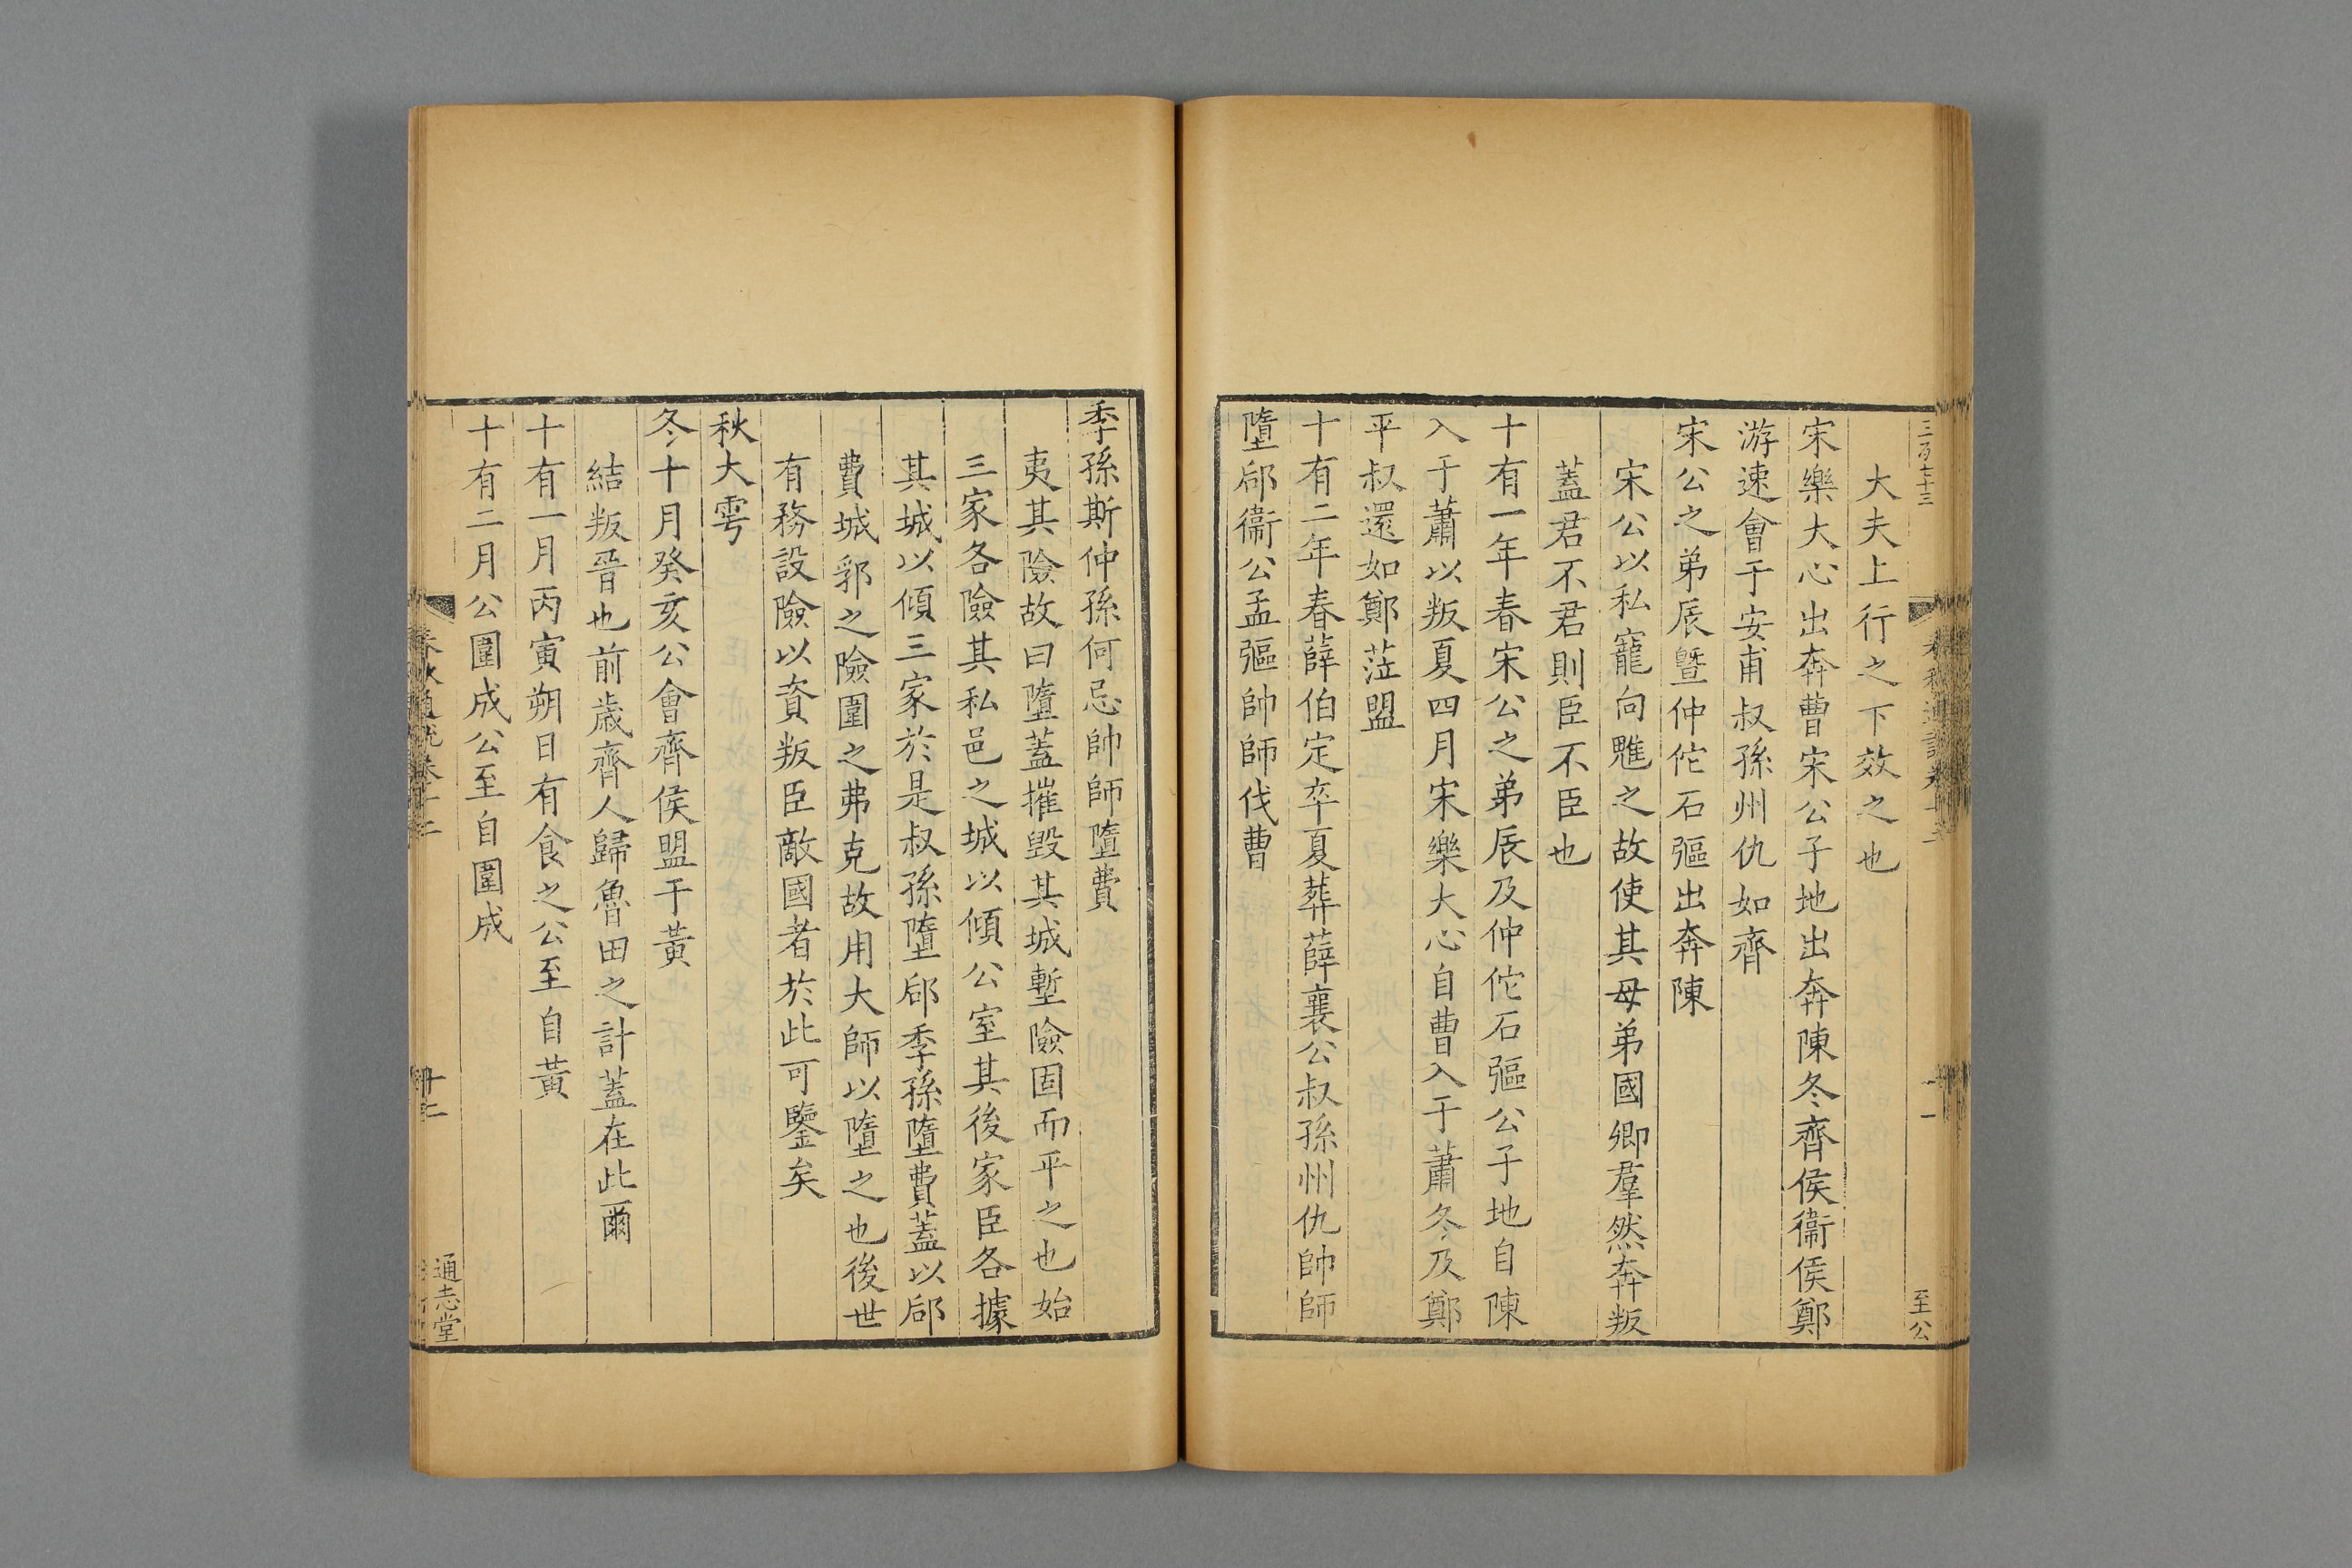 大夫上行之下效之也
宋樂大心出奔曹宋公子地出奔陳冬齊侯衞侯鄭
游速會于安甫叔孫州仇如齊
宋公之弟辰曁仲佗石彄出奔陳
宋公以私寵向魋之故使其母弟國卿羣然奔叛
蓋君不君則臣不臣也
十有一年春宋公之弟辰及仲佗石彄公子地自陳
入于蕭以叛夏四月宋樂大心自曹入于蕭冬及鄭
平叔還如鄭涖盟
十有二年春薛伯定卒夏葬薛襄公叔孫州仇帥師
墮郈衞公孟彄帥師伐曹
季孫斯仲孫何忌帥師墮費
夷其險故曰墮蓋摧毀其城塹險固而平之也始
三家各險其私邑之城以傾公室其後家臣各據
其城以傾三家於是叔孫墮郈季孫墮費蓋以郈
費城郛之險圍之弗克故用大師以墮之也後世
有務設險以資叛臣敵國者於此可鑒矣
秋大雩
冬十月癸亥公會齊侯盟于黃
結叛晉也前歲齊人歸魯田之計蓋在此爾
十有一月丙寅朔日有食之公至自黃
十有二月公圍成公至自圍成
通志堂